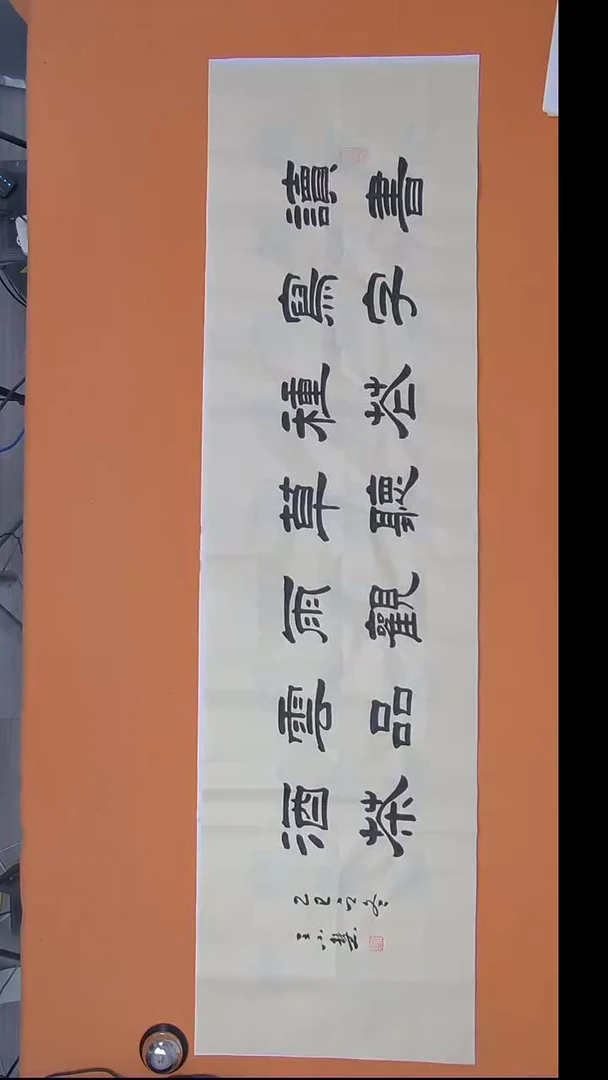 讀書
寫字
種花
草聽
雨觀
雪品
酒茶
乙巳之冬
王小慧